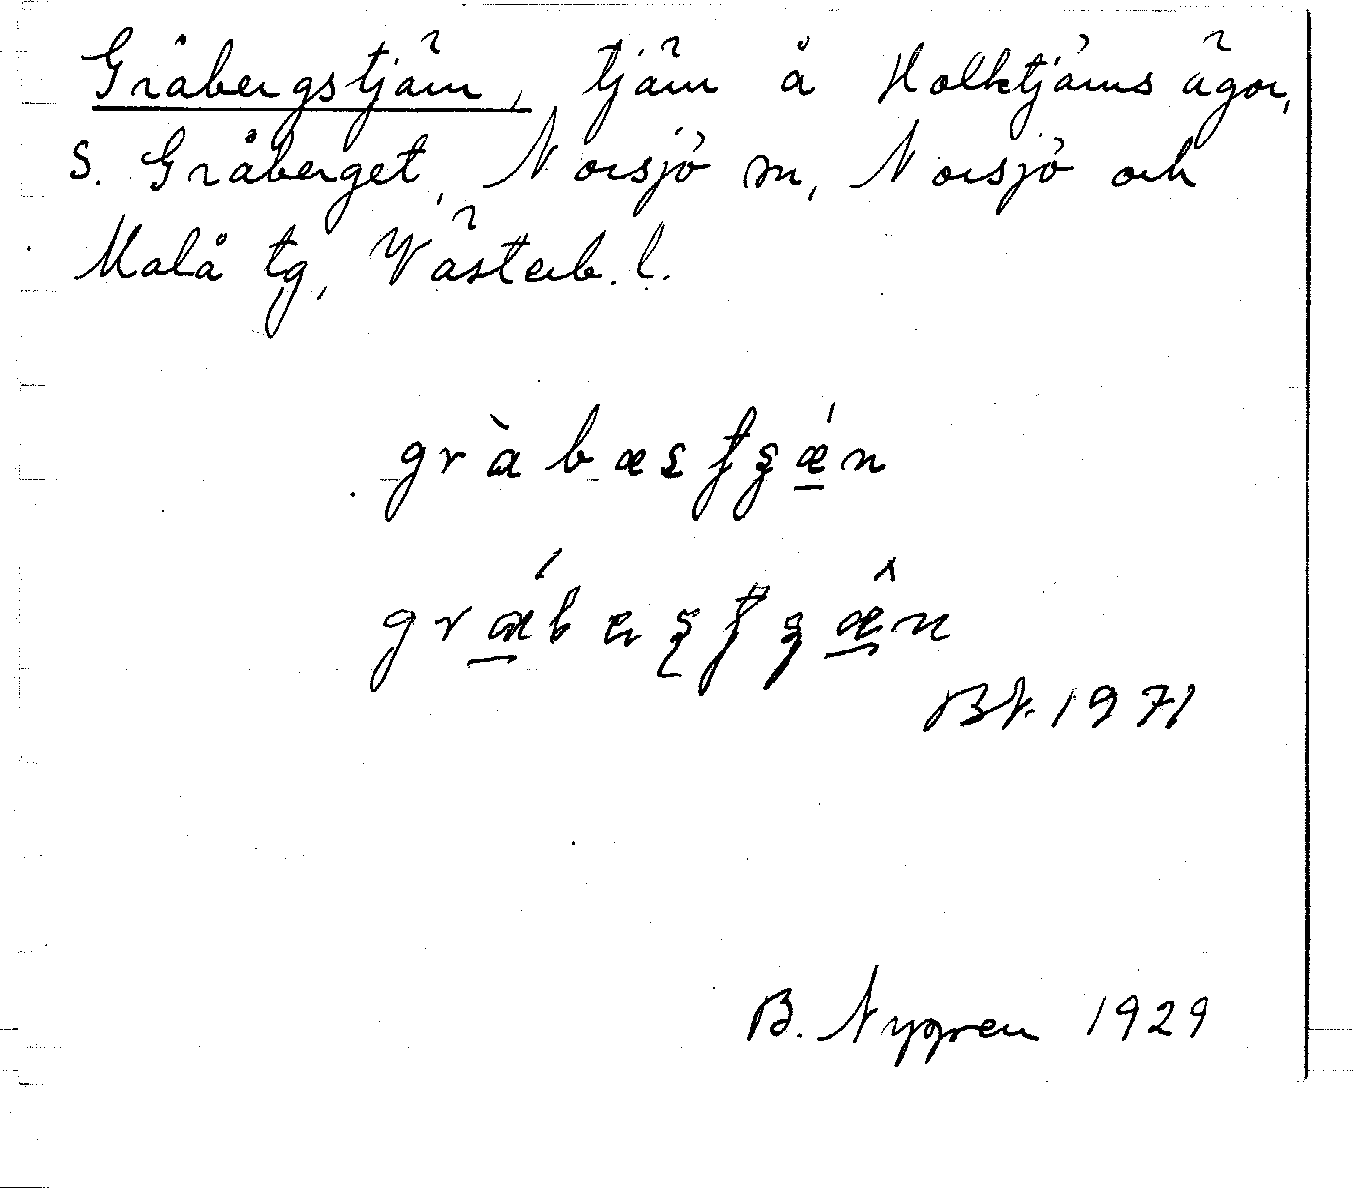 Gråbergstjärn, tjärn å Holktjärns ägor,
S. Gråberget, Norsjö sn, Norsjö och
Malå tg, Västerb. l.
Bt. 1971
B. Nygren 1929